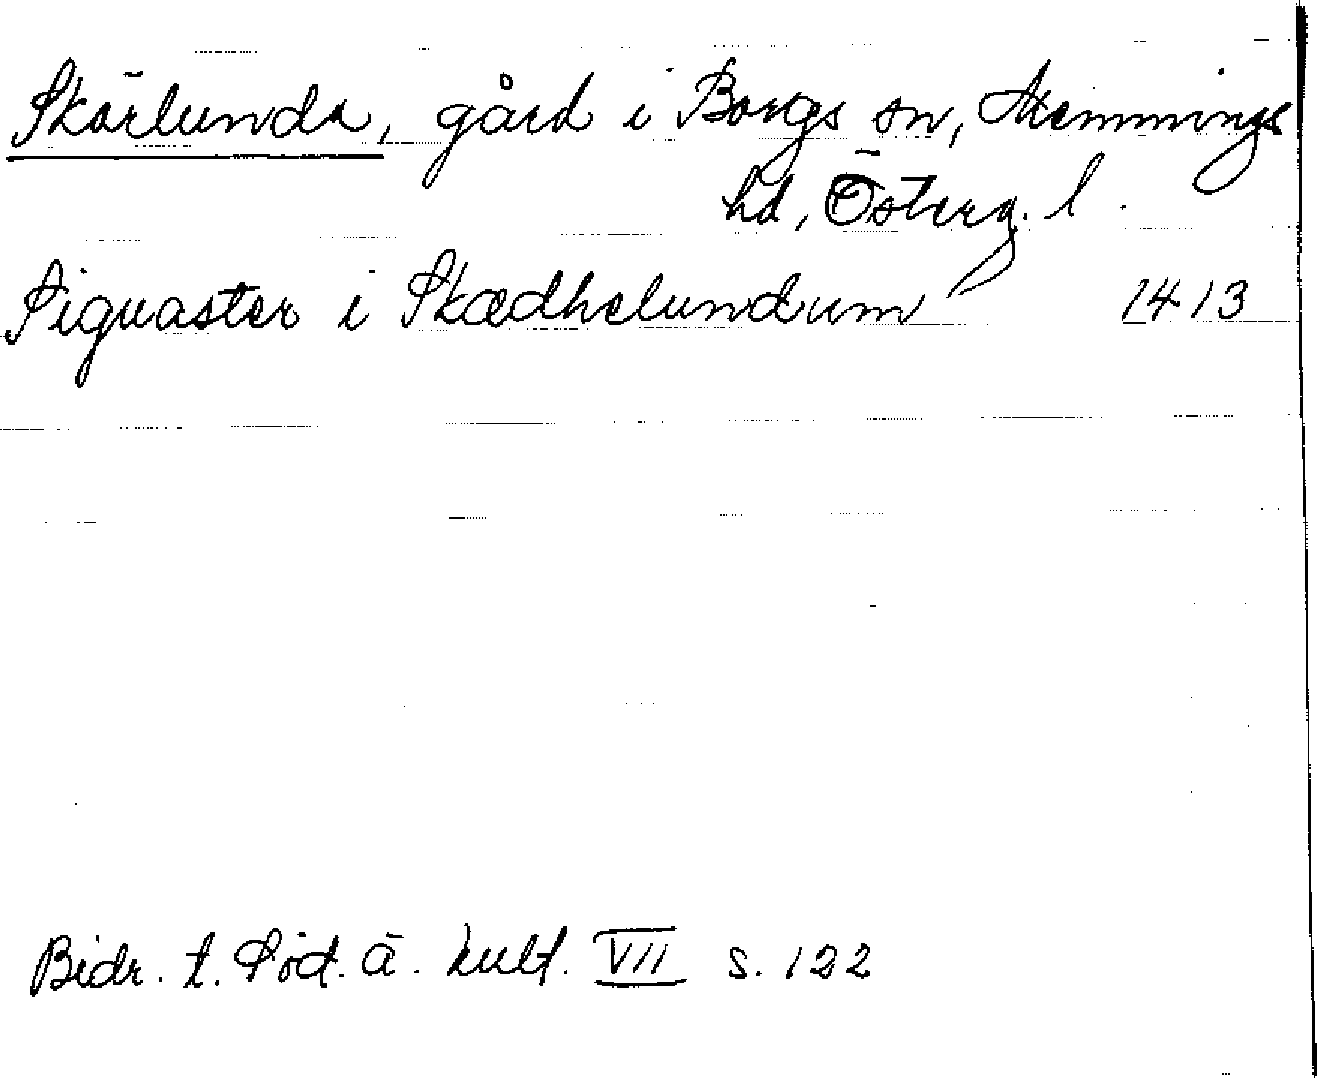 Skärlunda, gård i Borgs sn, Memmings
hd, Österg. l.
Siguaster i Skædhelundum 1413
Bidr. t. Söd. ä. kult. VII s. 122